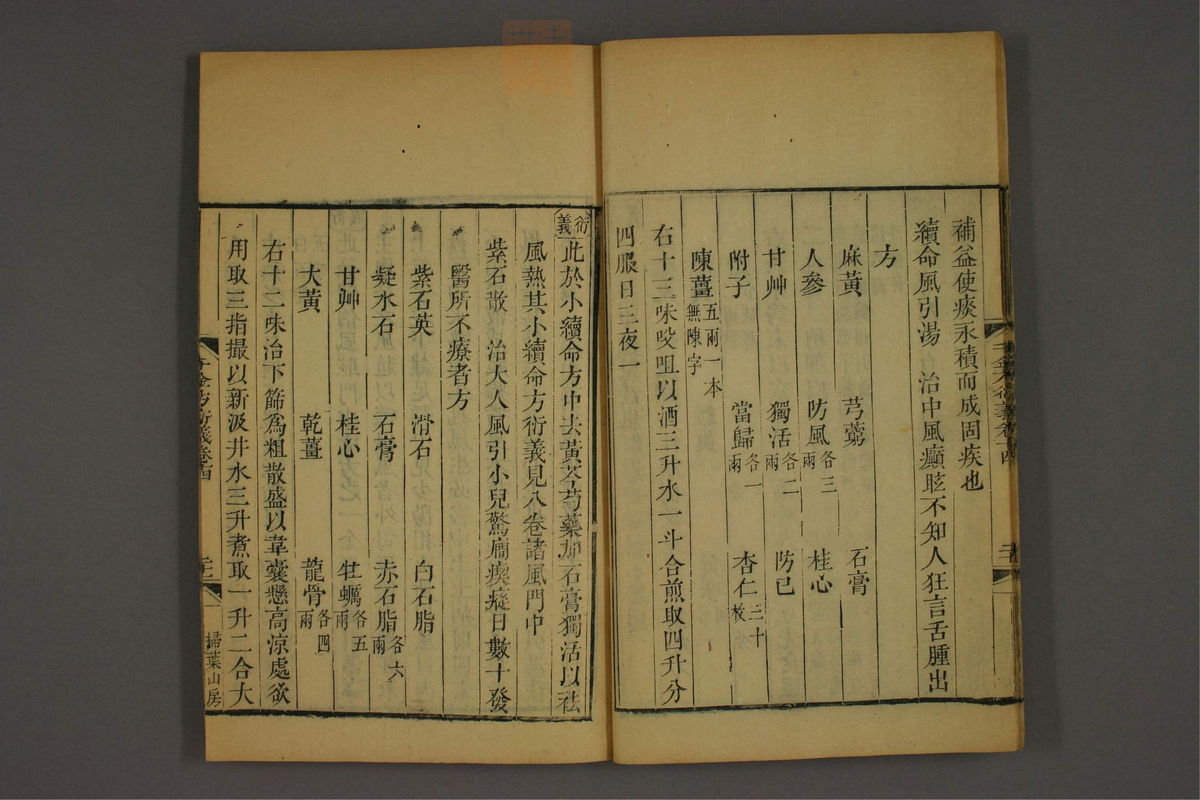 補益使痰永積而成固疾也
續命風引湯 治中風癲眩不知人狂言舌腫出
方
麻黃 芎藭 石膏
人參 防風各三兩 桂心
甘艸 獨活各二兩 防己
附子 當歸各一兩 杏仁三十枚
陳薑五兩一本無陳字
右十三味㕮咀以酒三升水一斗合煎取四升分
四服日三夜一
衍義此於小續命方中去黃芩芍藥加石膏獨活以祛
風熱其小續命方衍義見八卷諸風門中
紫石散 治大人風引小兒驚癎瘈瘲日數十發
醫所不療者方
紫石英 滑石 白石脂
凝水石 石膏 赤石脂各六兩
甘艸 桂心 牡蠣各五兩
大黃 乾薑 龍骨各四兩
右十二味治下篩爲粗散盛以韋囊懸高涼處欲
用取三指撮以新汲井水三升煮取一升二合大
千金方衍義卷十四
掃葉山房